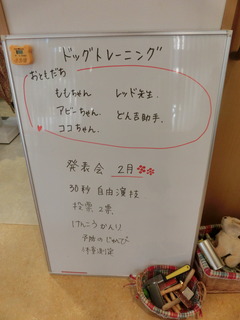 ドッグトレーニング
おともだち
ももちゃん レッド先生.
アビーちゃん. どん吉助手.
ココちゃん.
発表会 2月
30秒 自由演技
投票 2票
けんこうかんり
予防のじゅんび
体重測定